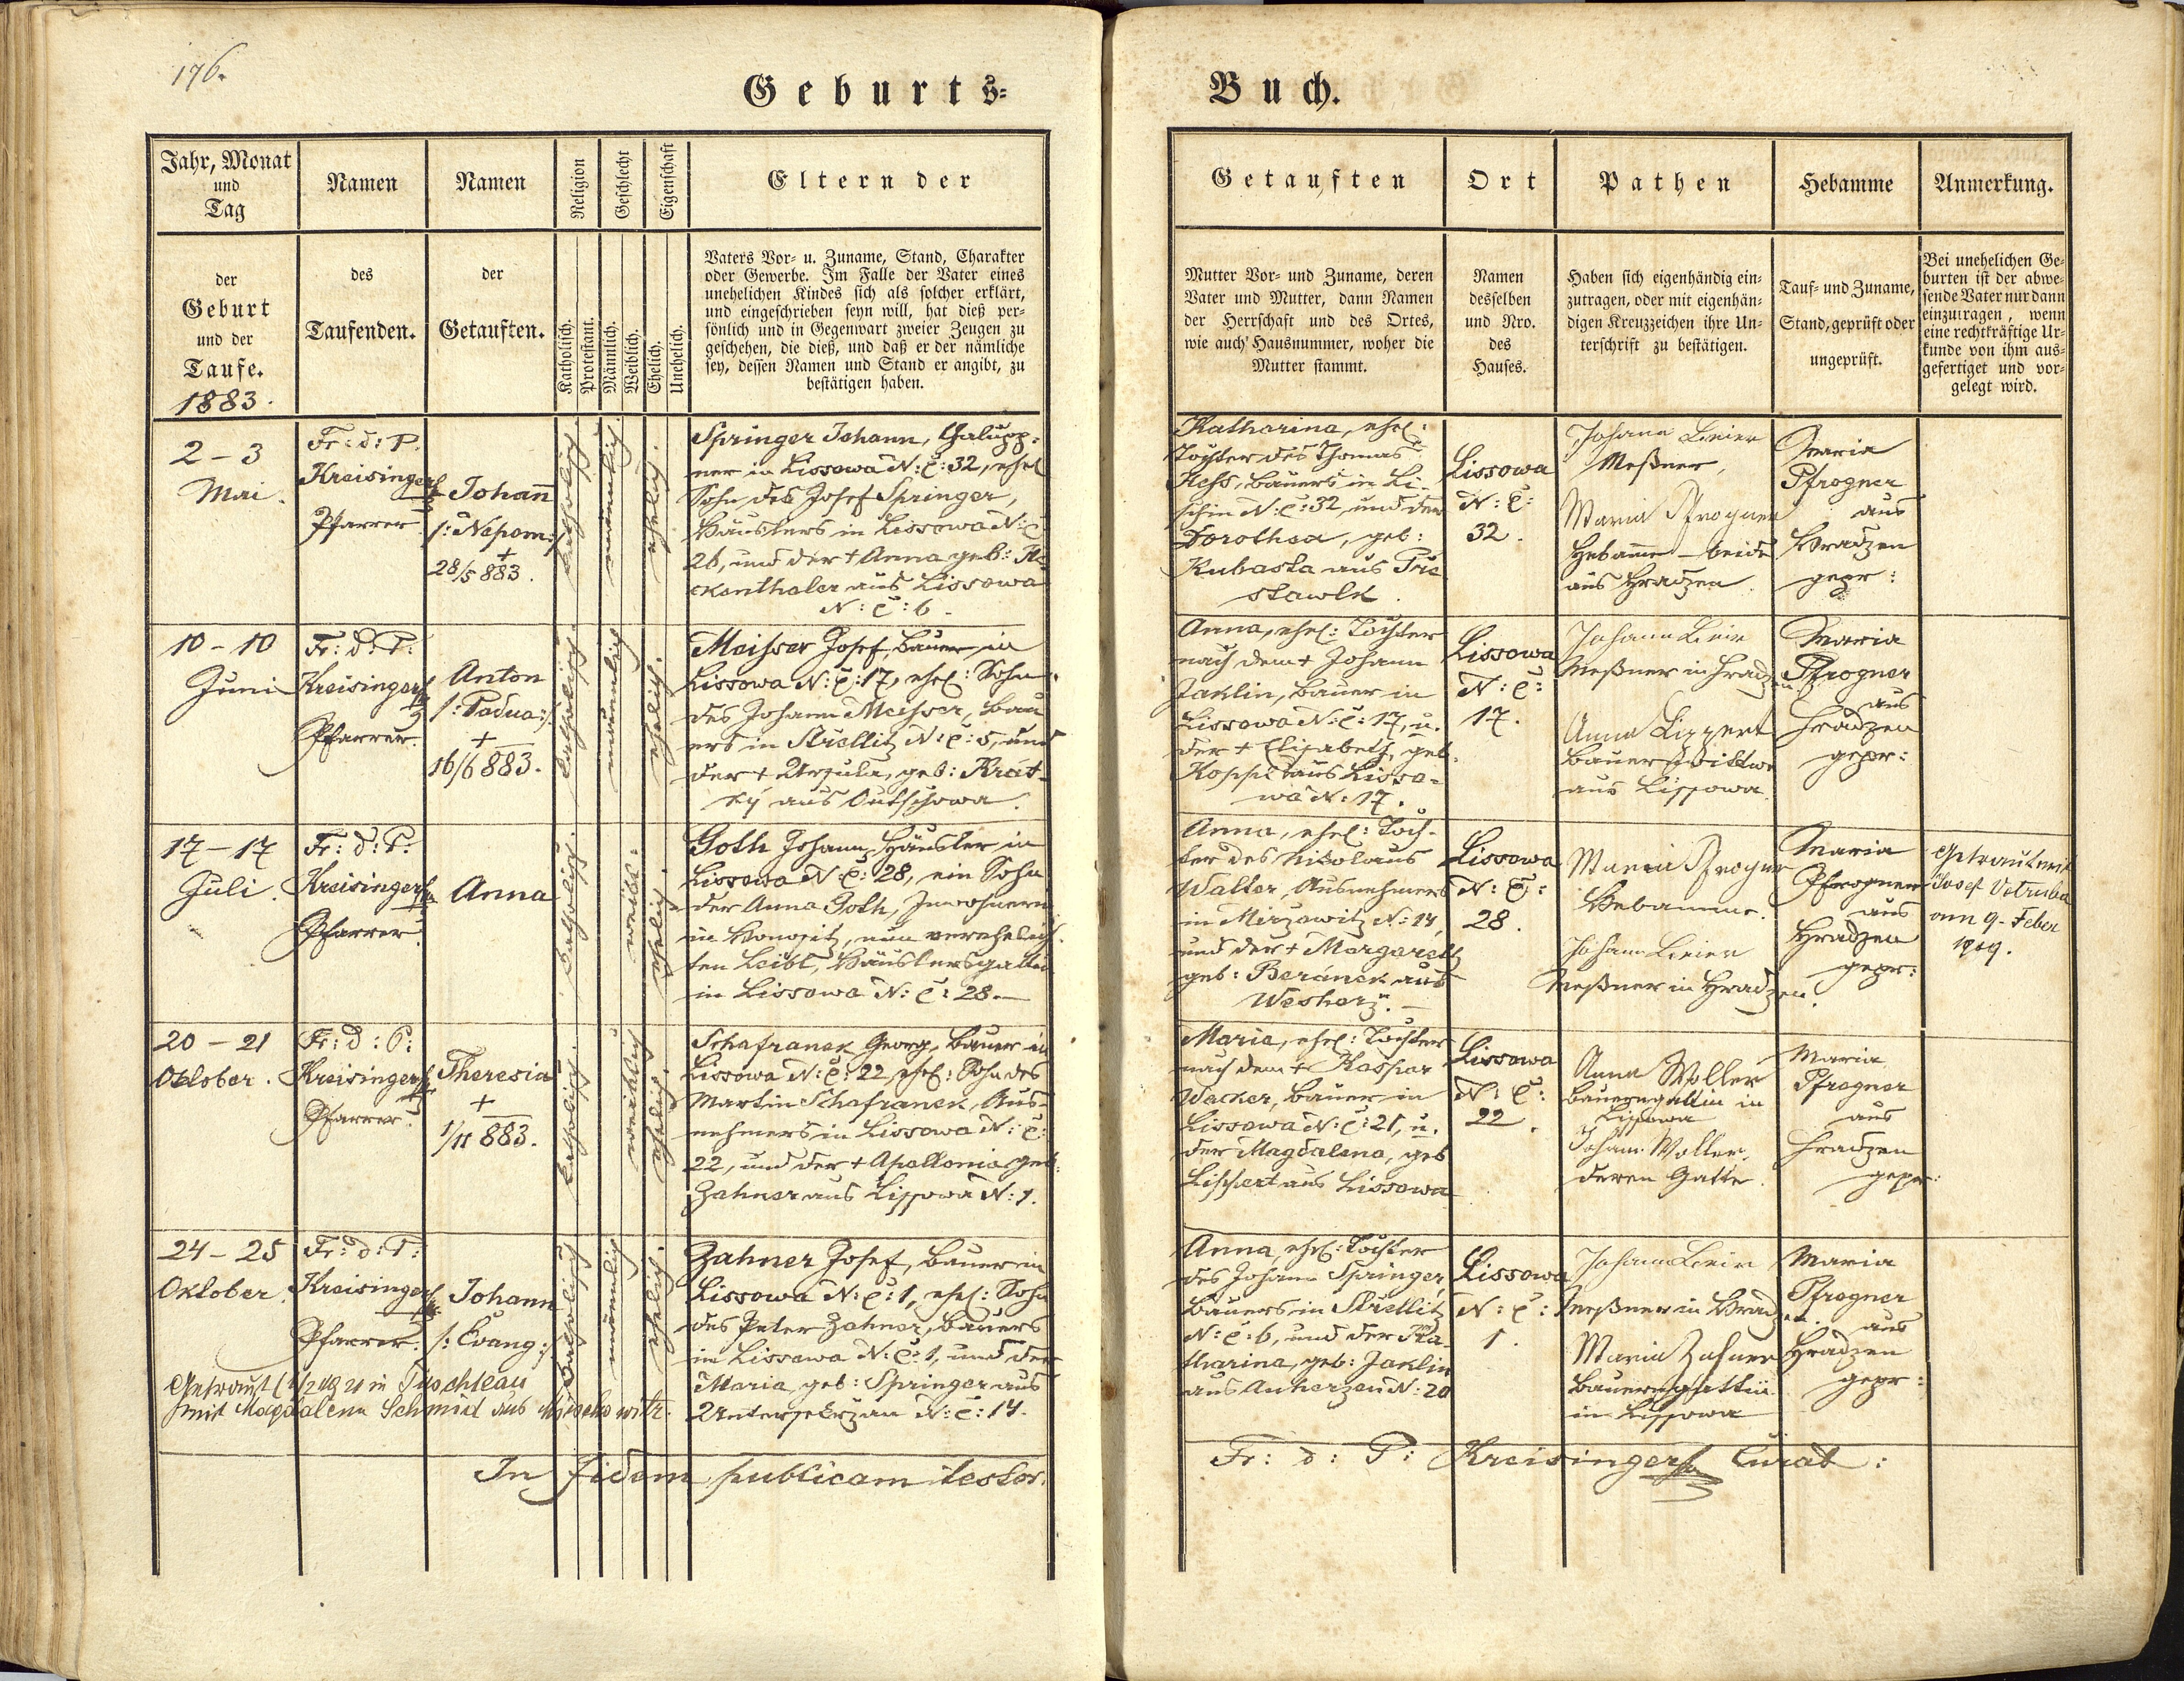 176.
Geburts=
Jahr, Monat
und
Tag
Namen
Namen
Religion
Geschlecht
Eigenschaft
Eltern der
der
Geburt
und der
Taufe.
1883.
des
Taufenden.
der
Getauften.
Katholisch.
Protestant.
Männlich.
Weiblich.
Ehelich.
Unehelich.
Vaters Vor- u. Zuname, Stand, Charakter
oder Gewerbe. Im Falle der Vater eines
unehelichen Kindes sich als solcher erklärt,
und eingeschrieben seyn will, hat dieß per-
sönlich und in Gegenwart zweier Zeugen zu
geschehen, die dieß, und daß er der nämliche
sey, dessen Namen und Stand er angibt, zu
bestätigen haben.
2-3
Mai.
Fr: d: P.
Kreisinger
Pfarrer
Johann
/: Nepom:/
+
28/5 883.
katholisch.
männlich.
ehelich.
Springer Johann, Chalupp-
ner in Lissowa N: C: 32, ehel
Sohn des Josef Springer,
Häuslers in Lissowa N: C
26, und der + Anna geb:
aus Lissowa
N: C: 6.
10-10
Juni
Fr: d: P:
Kreisinger
Pfarrer.
Anton
/: Padua:/
+
16/6 883.
katholisch.
männlich
ehelich.
Meisser Josef, Bauer in
Lissowa N: C: 17, ehel: Sohn
des Johann Meisser, Bau
ers in Strellitz N: C: 5, und
der + Ursula, geb: Krat-
ky aus
17-17
Juli.
Fr: d: P.
Kreisinger
Pfarrer.
Anna
katholisch.
weibl.
ehelich.
Goth Johann, Häusler in
Lissowa N: C: 28, ein Sohn
der Anna Goth, Inwohnerin
in nun verehelich-
ten Leibl, Häuslersgattin
in Lissowa N: C: 28.—
20-21
Oktober.
Fr: d: P:
Kreisinger
Pfarrer.
Theresia
+
1/11 883.
katholisch.
weiblich
ehelich.
Schafranek Georg, Bauer in
Lissowa N: C: 22, ehel: Sohn des
Martin Schafranek, Aus-
nehmers in Lissowa N: C:
22, und der + Apollonia geb:
Zahner aus Lissowa N: 1.
24-25
Oktober.
Fr: d: P:
Kreisinger
Pfarrer.
Johann
/: Evang:/
katholisch
männlich
ehelich.
Zahner Josef, Bauer in
Lissowa N: C: 1, ehel: Sohn
des Peter Zahner, Bauers
in Lissowa N: C: 1, und der
Maria, geb: Springer aus
Untersekerzan N: C: 14.
Getraut in Tuschkau
mit Magdalena Schmid aus
In fidem publicam testor.
Buch.
Getauften
Ort
Pathen
Hebamme
Anmerkung.
Mutter Vor- und Zuname, deren
Vater und Mutter, dann Namen
der Herrschaft und des Ortes,
wie auch Hausnummer, woher die
Mutter stammt.
Namen
desselben
und Nro.
des
Hauses.
Haben sich eigenhändig ein-
zutragen, oder mit eigenhän-
digen Kreuzzeichen ihre Un-
terschrift zu bestätigen.
Tauf- und Zuname,
Stand, geprüft oder
ungeprüft.
Bei unehelichen Ge-
burten ist der abwe-
sende Vater nur dann
einzutragen, wenn
eine rechtkräftige Ur-
kunde von ihm aus-
gefertiget und vor-
gelegt wird.
Katharina, ehel:
Tochter des Thomas
Hess, Bauers in Li-
N: C: 32, und der
Dorothea, geb:
Kubaska aus Prie
stawlk.
Lissowa
N: C:
32.
Johann Beier
Meßner,
Maria Pfrogner
Hebamme - beide
aus Hradzen
Maria
Pfrogner
aus
Hradzen
gepr:
Anna, ehel: Tochter
nach dem + Johann
Jaklin, Bauer in
Lissowa N: C: 17, u.
der + Elisabeth, geb.
aus Lisso-
wa N: 17.
Lissowa
N: C:
17.
Johann Beier
Meßner in Hradzen
Anna Lippert
Bauerswittwe
aus Lissowa.
Maria
Pfrogner
aus
Hradzen
gepr:
Anna, ehel: Toch-
ter des Nikolaus
Walter, Ausnehmers
in Mirzowitz N: 14,
und der + Margareth
geb: Beranek aus
Wesherz.—
Lissowa
N: C:
28.
Maria Pfrogner
Hebamme.
Johann Beier
Meßner in Hradzen.
Maria
Pfrogner
aus
Hradzen
gepr:
Getraut mit
Josef Vetruba
am 9. Feber
1909.
Maria, ehel: Tochter
nach dem + Kaspar
Wacker, Bauer in
Lissowa N: C: 21, u.
der Magdalena, geb
Lippert aus Lissowa
Lissowa
N: C:
22.
Anna Woller
Bauersgattin in
Lissowa
Johann Woller,
deren Gatte.
Maria
Pfrogner
aus
Hradzen
gepr:
Anna, ehel: Tochter
des Johann Springer,
Bauers in Strellitz
N: C: 6, und der Ka-
tharina, geb: Jaklin
aus Auherzen N: 20
Lissowa
N: C:
1.
Johann Beier
Meßner in Hradzen.
Maria Zahner
Bauersgattin
in Lissowa
Maria
Pfrogner
aus
Hradzen
gepr:
Fr: d: P: Kreisinger Curat: